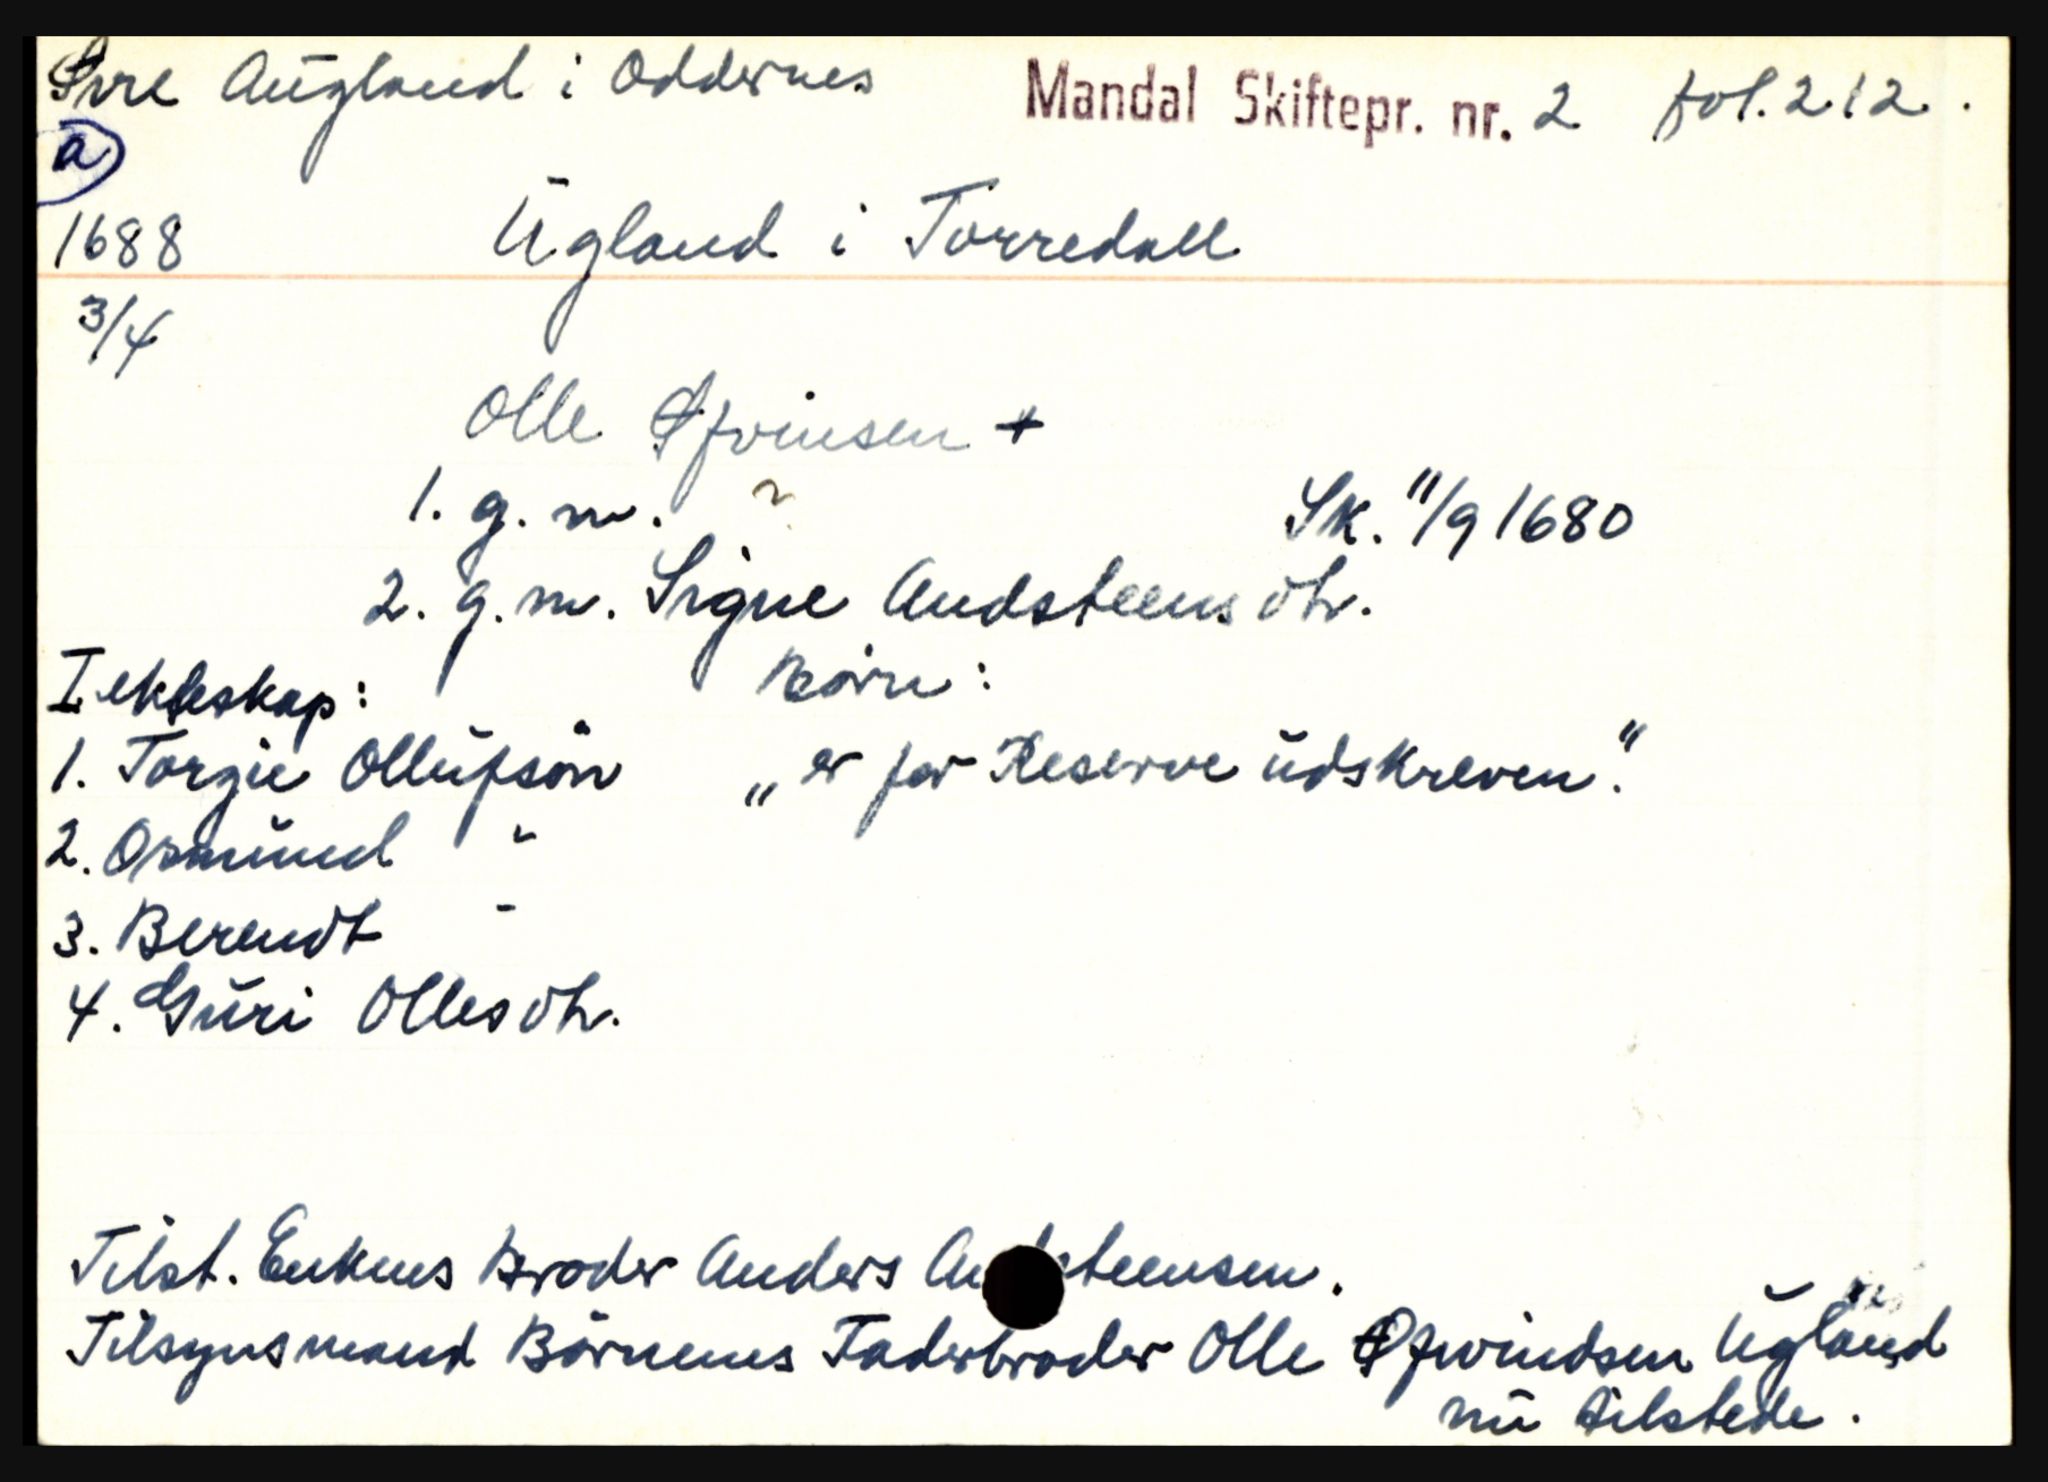 Øvre Augland i Oddernes Mandal Skiftepr. nr. 2 fol. 212.
a
1688 Ugland i Torredall
3/4
Olle Øfvinsen +
1. g. m. ~ Sk. 11/9 1680
2. g. m. Signe Andsteensdtr.
I ekteskap: Børn:
1. Torgie Ollufsøn „er for Reserve udskreven."
2. Osmund "
3. Berendt -
4. Guri Ollesdtr.
Tilst. Enkens Broder Anders An steensen.
Tilsynsmand Børnenes Faderbroder Olle Øfwindsen Ugland
nu tilstede.